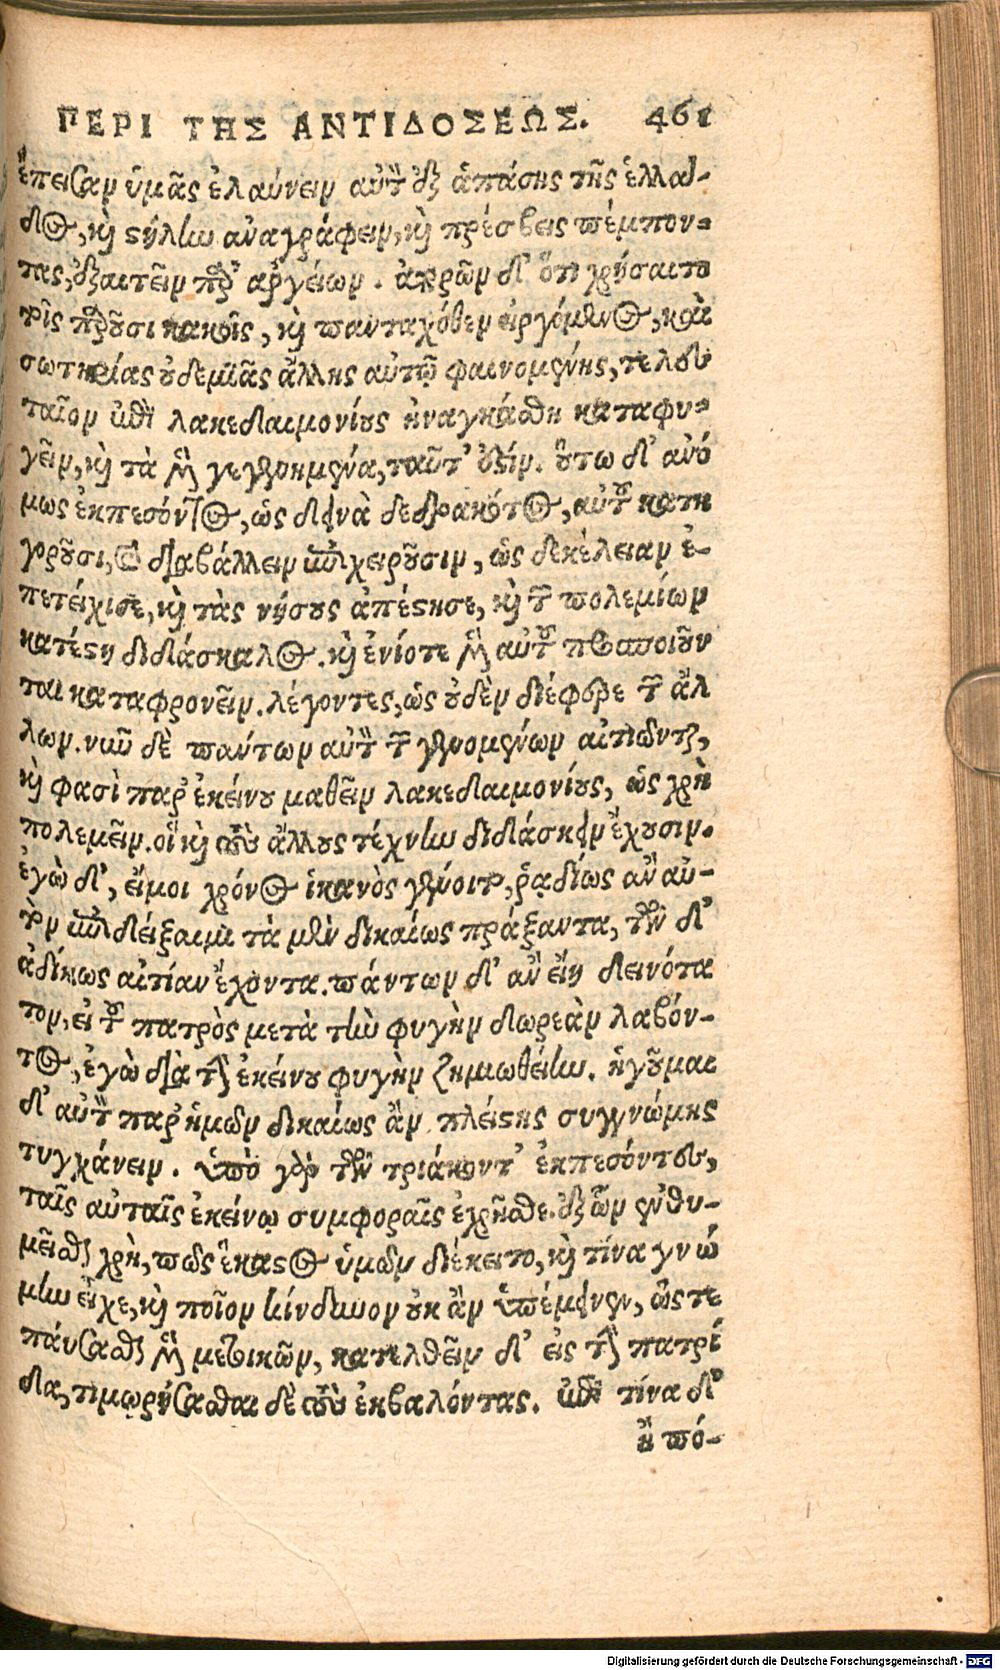 ΠΕΡΙ ΤΗΣ ΑΝΤΙΔΟΣΕΩΣ. 461
ἔπεισαν ὑμᾶς ἐλαύνειν αὐτὸν ἐξ ἁπάσης τῆς ἑλλά-
δος, καὶ στήλην ἀναγράφειν, καὶ πρέσβεις πέμπον-
τας, ἐξαιτεῖν παρ' ἀργείων. ἀπορῶν δ' ὅτι χρήσαιτο
τοῖς παροῦσι κακοῖς, καὶ πανταχόθεν εἰργόμενος, καὶ
σωτηρίας οὐδεμιᾶς ἄλλης αὐτῷ φαινομένης, τελευ
ταῖον ἐπὶ λακεδαιμονίους ἠναγκάσθη καταφυ-
γεῖν, καὶ τὰ μὲν γεγενημένα, ταῦτ' ἐστίν. οὕτω δ' ἀνό
μως ἐκπεσόντος, ὡς δεινὰ δεδρακότος, αὐτοῦ κατη
γοροῦσι, καὶ διαβάλλειν ἐπιχειροῦσιν, ὡς δεκέλειαν ἐ-
πετείχισε, καὶ τὰς νήσους ἀπέστησε, καὶ τῶν πολεμίων
κατέστη διδάσκαλος. καὶ ἐνίοτε μὲν αὐτοῦ προσποιοῦν
ται καταφρονεῖν. λέγοντες, ὡς οὐδὲν διέφερε τῶν ἄλ
λων. νυνὶ δὲ πάντων αὐτὸν τῶν γενομένων αἰτιῶνται,
καὶ φασὶ παρ' ἐκείνου μαθεῖν λακεδαιμονίους, ὡς χρὴ
πολεμεῖν. οἳ καὶ τοὺς ἄλλους τέχνην διδάσκειν ἔχουσιν.
ἐγὼ δ', εἴ μοι χρόνος ἱκανὸς γένοιτο, ῥᾳδίως ἂν αὐ-
τὸν ἐπιδείξαιμι τὰ μὲν δικαίως πράξαντα, τῶν δ'
ἀδίκως αἰτίαν ἔχοντα. πάντων δ' ἂν εἴη δεινότα
τον, εἰ τοῦ πατρὸς μετὰ τὴν φυγὴν δωρεὰν λαβόν-
τος, ἐγὼ διὰ τὴν ἐκείνου φυγὴν ζημιωθείην. ἡγοῦμαι
δ' αὐτὸν παρ' ἡμῶν δικαίως ἂν πλείστης συγγνώμης
τυγχάνειν. ὑπὸ γὰρ τῶν τριάκοντ' ἐκπεσόντες,
ταῖς αὐταῖς ἐκείνῳ συμφοραῖς ἐχρῆσθε. ἐξ ὧν ἐνθυ-
μεῖσθαι χρὴ, πῶς ἕκαστος ὑμῶν διέκειτο, καὶ τίνα γνώ
μην εἶχε, καὶ ποῖον κίνδυνον οὐκ ἂν ὑπέμεινεν, ὥστε
παύσασθαι μὲν μετοικῶν, κατελθεῖν δ' εἰς τὴν πατρί
δα, τιμωρήσασθαι δὲ τοὺς ἐκβαλόντας. ἐπὶ τίνα δ'
ἢ πό-
Digitalisierung gefördert durch die Deutsche Forschungsgemeinschaft - DFG